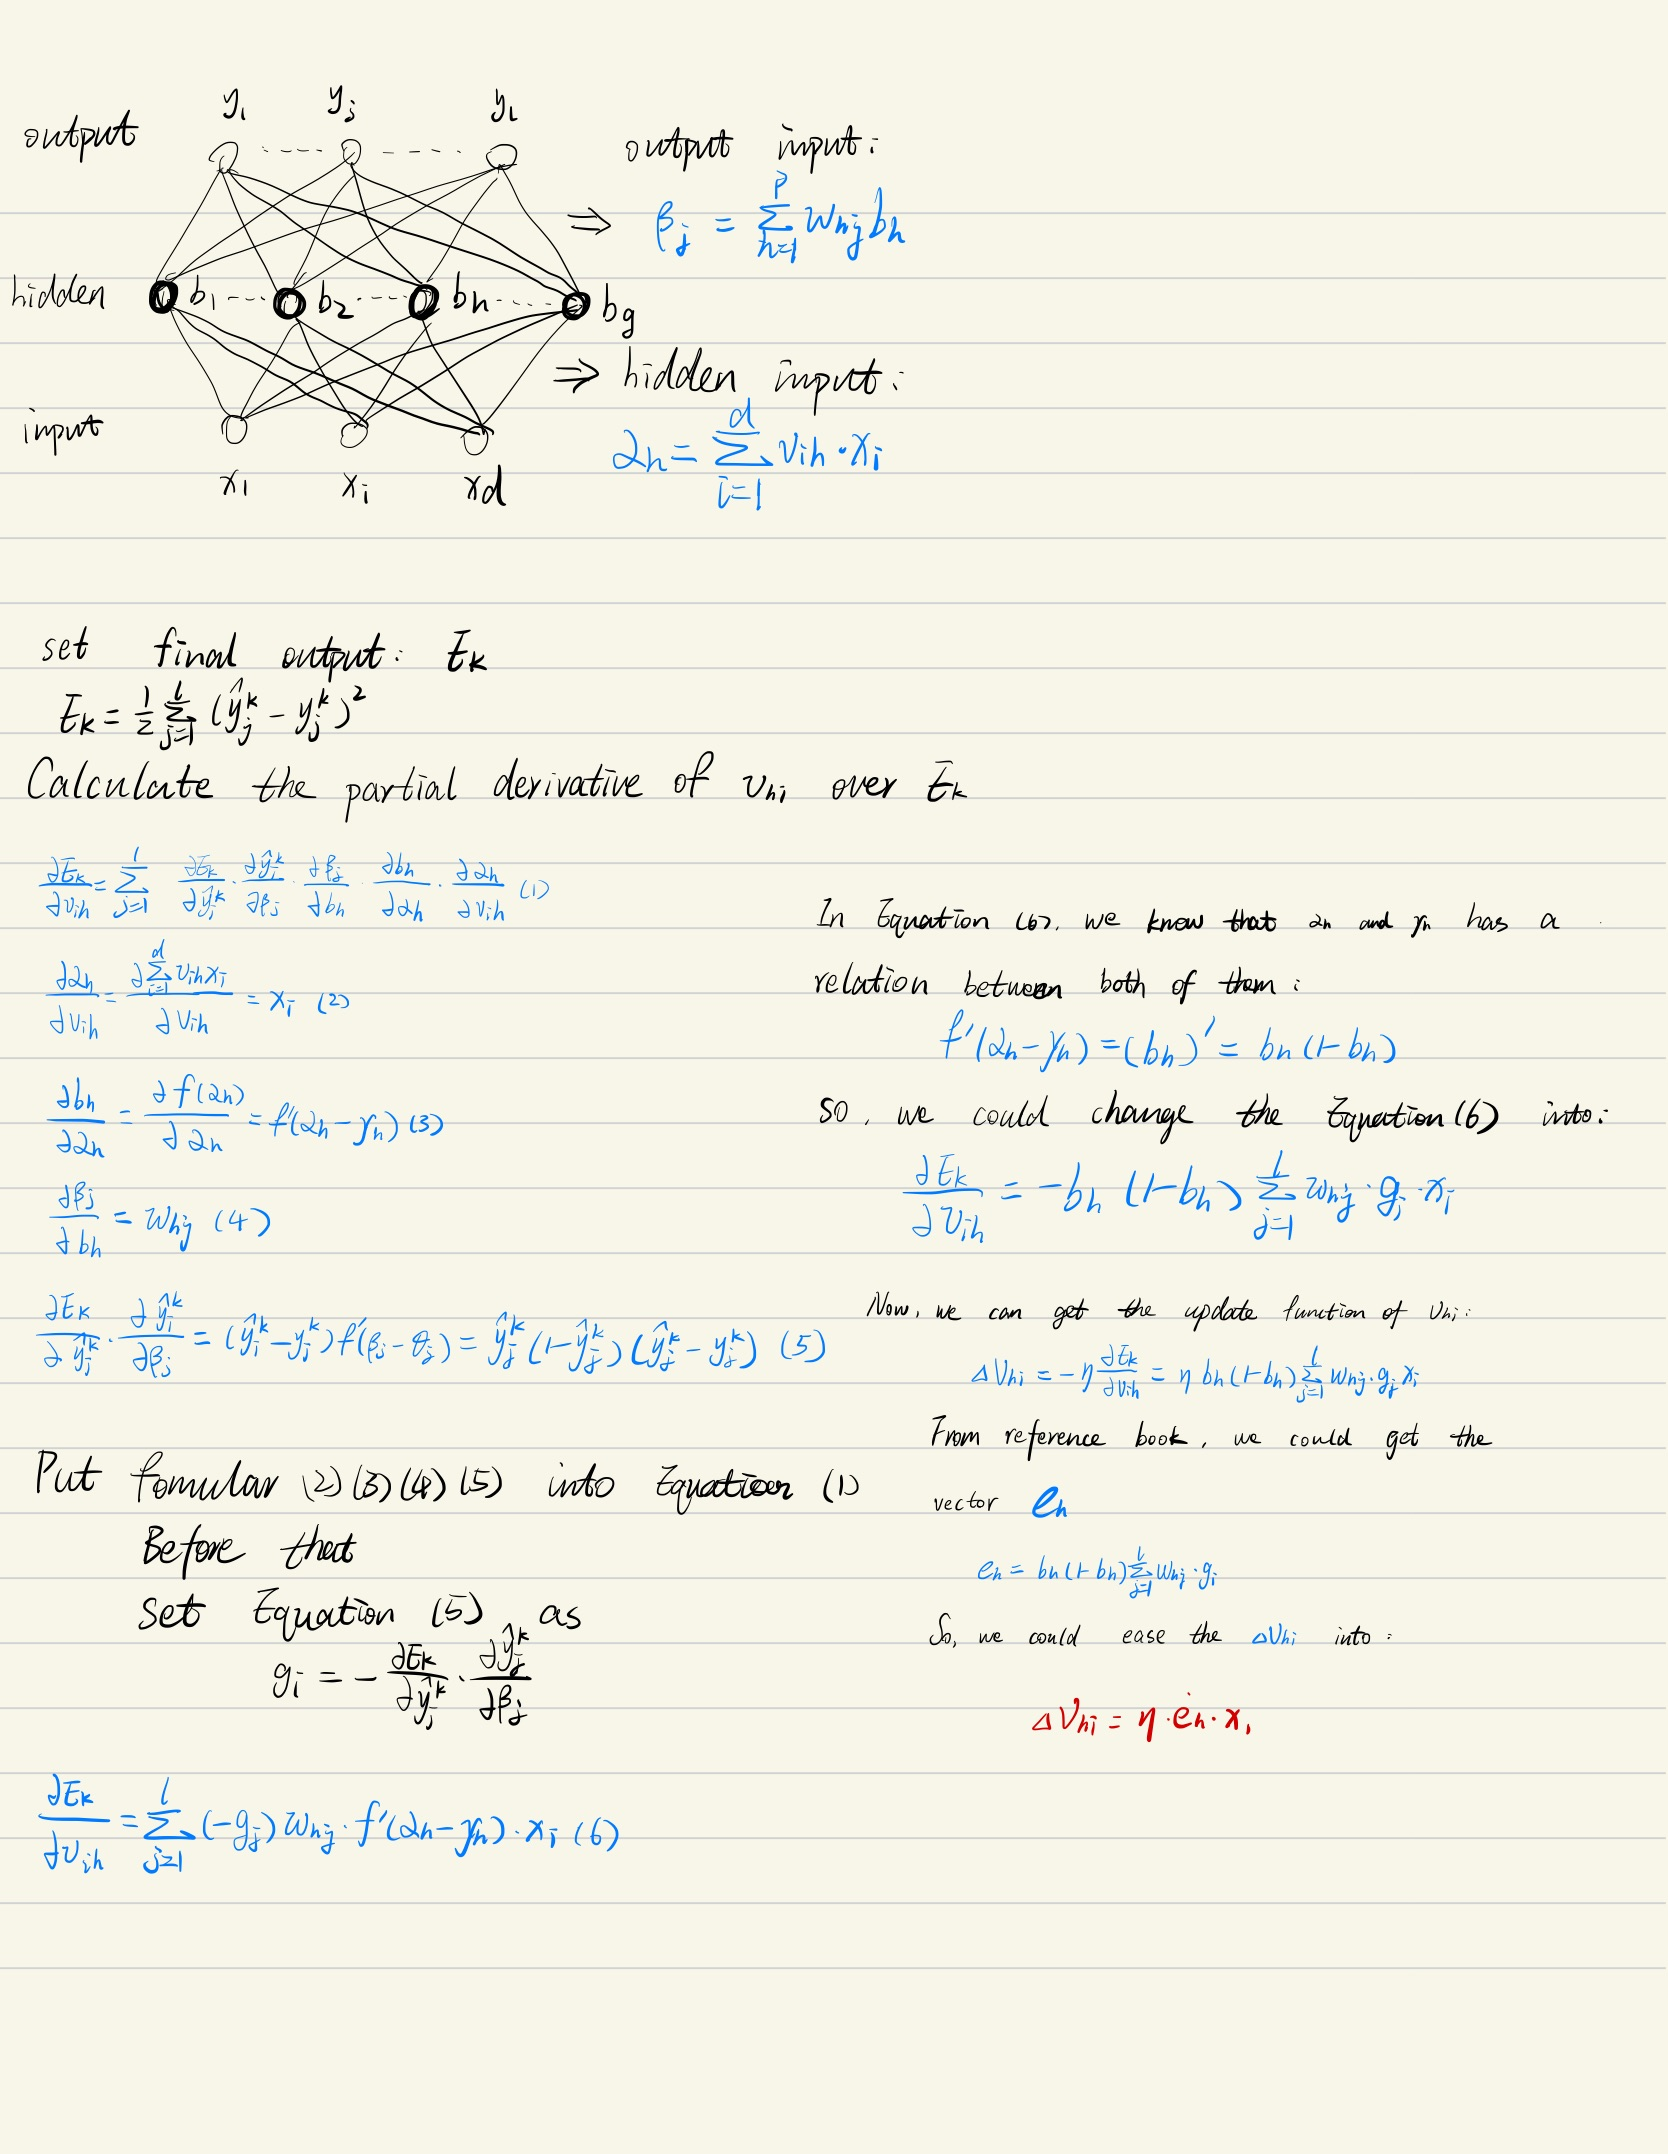 y₁ yⱼ yₗ
output
output input:
βⱼ = Σₕ₌₁ᵖ wₕⱼ bₕ
hidden b₁ b₂ bₕ bg
hidden input:
αₕ = Σᵢ₌₁ᵈ vᵢₕ · xᵢ
input
x₁ xᵢ xd
set final output: Eₖ
Eₖ = 1/2 Σⱼ₌₁ˡ (ŷⱼᵏ - yⱼᵏ)²
Calculate the partial derivative of vₕᵢ over Eₖ
∂Eₖ/∂vᵢₕ = Σⱼ₌₁ˡ ∂Eₖ/∂ŷⱼᵏ · ∂ŷⱼᵏ/∂βⱼ · ∂βⱼ/∂bₕ · ∂bₕ/∂αₕ · ∂αₕ/∂vᵢₕ (1)
∂αₕ/∂vᵢₕ = ∂Σᵢ₌₁ᵈ vᵢₕxᵢ/∂vᵢₕ = xᵢ (2)
∂bₕ/∂αₕ = ∂f(αₕ)/∂αₕ = f'(αₕ - γₕ) (3)
∂βⱼ/∂bₕ = wₕⱼ (4)
∂Eₖ/∂ŷⱼᵏ · ∂ŷⱼᵏ/∂βⱼ = (ŷⱼᵏ - yⱼᵏ) f'(βⱼ - θⱼ) = ŷⱼᵏ (1-ŷⱼᵏ) (ŷⱼᵏ - yⱼᵏ) (5)
Put fomular (2)(3)(4)(5) into Equation (1)
Before that
set Equation (5) as
gᵢ = - ∂Eₖ/∂ŷⱼᵏ · ∂ŷⱼᵏ/∂βⱼ
∂Eₖ/∂vᵢₕ = Σⱼ₌₁ˡ (-gⱼ) wₕⱼ · f'(αₕ - γₕ) · xᵢ (6)
In Equation (6), we know that αₕ and γₕ has a
relation between both of them:
f'(αₕ - γₕ) = (bₕ)' = bₕ (1-bₕ)
so, we could change the Equation (6) into:
∂Eₖ/∂vᵢₕ = -bₕ (1-bₕ) Σⱼ₌₁ˡ wₕⱼ · gⱼ · xᵢ
Now, we can get the update function of vₕᵢ:
Δvₕᵢ = -η ∂Eₖ/∂vᵢₕ = η bₕ(1-bₕ) Σⱼ₌₁ˡ wₕⱼ · gⱼ xᵢ
From reference book, we could get the
vector eₕ
eₕ = bₕ(1-bₕ) Σⱼ₌₁ˡ wₕⱼ · gⱼ
So, we could ease the Δvₕᵢ into:
Δvₕᵢ = η · eₕ · xᵢ